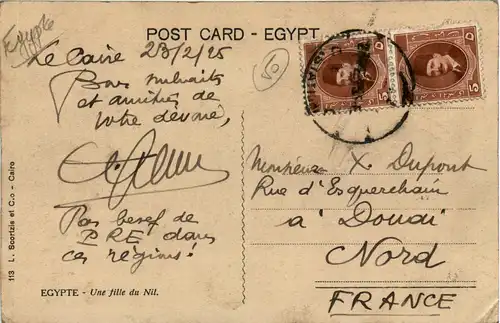 Egypte
POST CARD - EGYPT
50
Le Caire 23/2/25
Bons souhaits
et amitiés de
votre dévoué,
Pas besef de
"PRE" dans
ces régions!
Monsieur X. Dupont
Rue d'Esquerchin
à Douai
Nord
FRANCE
EGYPTE - Une fille du Nil.
113 L. Scortzis et C.o - Cairo
5
5